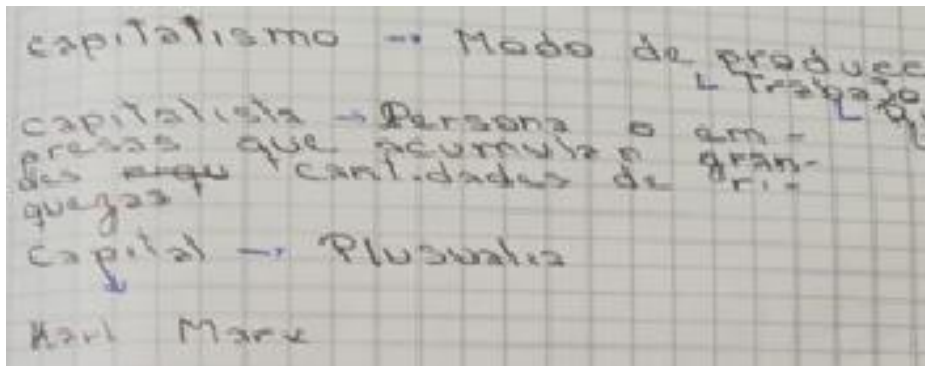 capitalismo → Modo de producc
↳ Trabajo
↳
capitalista → Persona o em-
presas que acumulan gran-
des cantidades de ri-
quezas
capital → Pluswalia
↓
Karl Marx